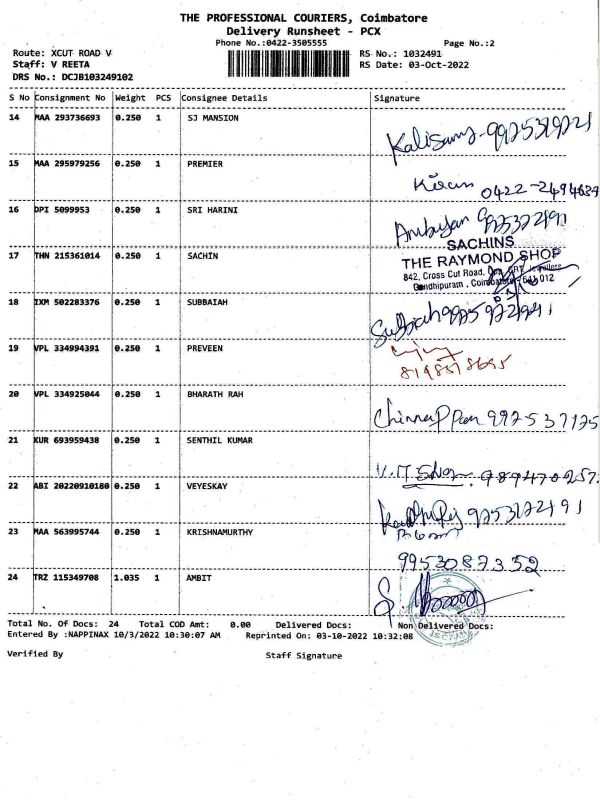 THE PROFESSIONAL COURIERS, Coimbatore
Delivery Runsheet - PCX
Phone No.:0422-3505555 Page No.:2
Route: XCUT ROAD V RS No.: 1032491
Staff: V REETA RS Date: 03-Oct-2022
DRS No.: DCJB103249102
S No Consignment No Weight PCS Consignee Details Signature
14 MAA 293736693 0.250 1 SJ MANSION
15 MAA 295979256 0.250 1 PREMIER
Kiran 0422-2494684
16 DPI 5099953 0.250 1 SRI HARINI
SACHINS
17 THN 215361014 0.250 1 SACHIN THE RAYMOND SHOP
842, Cross Cut Road, Opp. GRT Jewellers
Gandhipuram, Coimbatore - 641 012
18 IXM 502283376 0.250 1 SUBBAIAH
Subbiah
19 VPL 334994391 0.250 1 PREVEEN
20 VPL 334925044 0.250 1 BHARATH RAH
Chinnappan 992537125
21 KUR 693959438 0.250 1 SENTHIL KUMAR
22 ABI 20220910180 0.250 1 VEYESKAY
23 MAA 563995744 0.250 1 KRISHNAMURTHY
9953087352
24 TRZ 115349708 1.035 1 AMBIT
Total No. Of Docs: 24 Total COD Amt: 0.00 Delivered Docs: Non Delivered Docs:
Entered By :NAPPINAX 10/3/2022 10:30:07 AM Reprinted On: 03-10-2022 10:32:08
Verified By Staff Signature